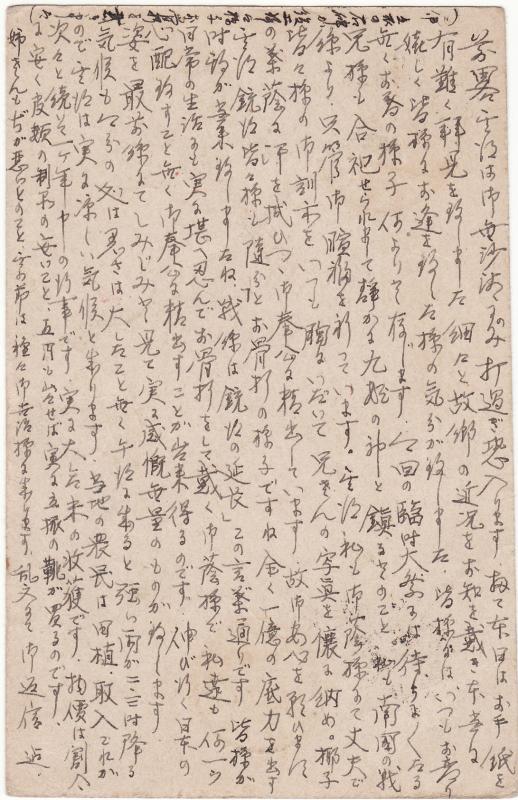 前略 其後は御無沙汰のみ打過ぎ恐入ります 扨て本日はお手紙を
有難く拝見を致しました 細々と故郷の近況をお知せ戴き本当に
嬉しく皆様にお逢を致した様の気分が致しました 皆様にはいつもお変り
無くお暮の様子何よりと存じます 今回の臨時大祭には待ちに待ちたる
兄様も合祀せられまして静かな九段の神と鎮るとのこと 私も南国の戦
線より只管御冥福を祈っています 其後私も御蔭様にて丈夫で
皆々様の御訓示をいつも胸にいだいて兄さんの写真を懐に納め 椰子
の葉蔭に汗を拭ひつゝ御奉公に精出しています 故御安心を願ひます
其後銃後皆々様も随分とお骨折の様子ですね 全く一億の底力を出す
時期が参りましたね 戦線は銃後の延長 この言葉通りです 皆様が
日常の生活にも実に堪へ忍んでお骨折をして戴く御蔭様で私達も何一つ
心配致すこと無く御奉公に精出すことが出来得るのです 伸び行く日本の
姿を最前線にてしみじみと見て実に感慨無量のものが致します
気候も今の処は暑さは大したこと無く午後に来ると強い雨が二、三時間降る
ので其後は実に涼しい気候と来ります 当地の農民は田植、取入これが
次々と続き一ケ年中の行事です 実に大した米の収穫です 物価は割合
に安く皮類の制限の無いこと、五円も出せば実に立派の靴が買るのです
姉さんもぢが悪いとのこと 其の節は種々御世話様に来ります 乱文にて御返信迄